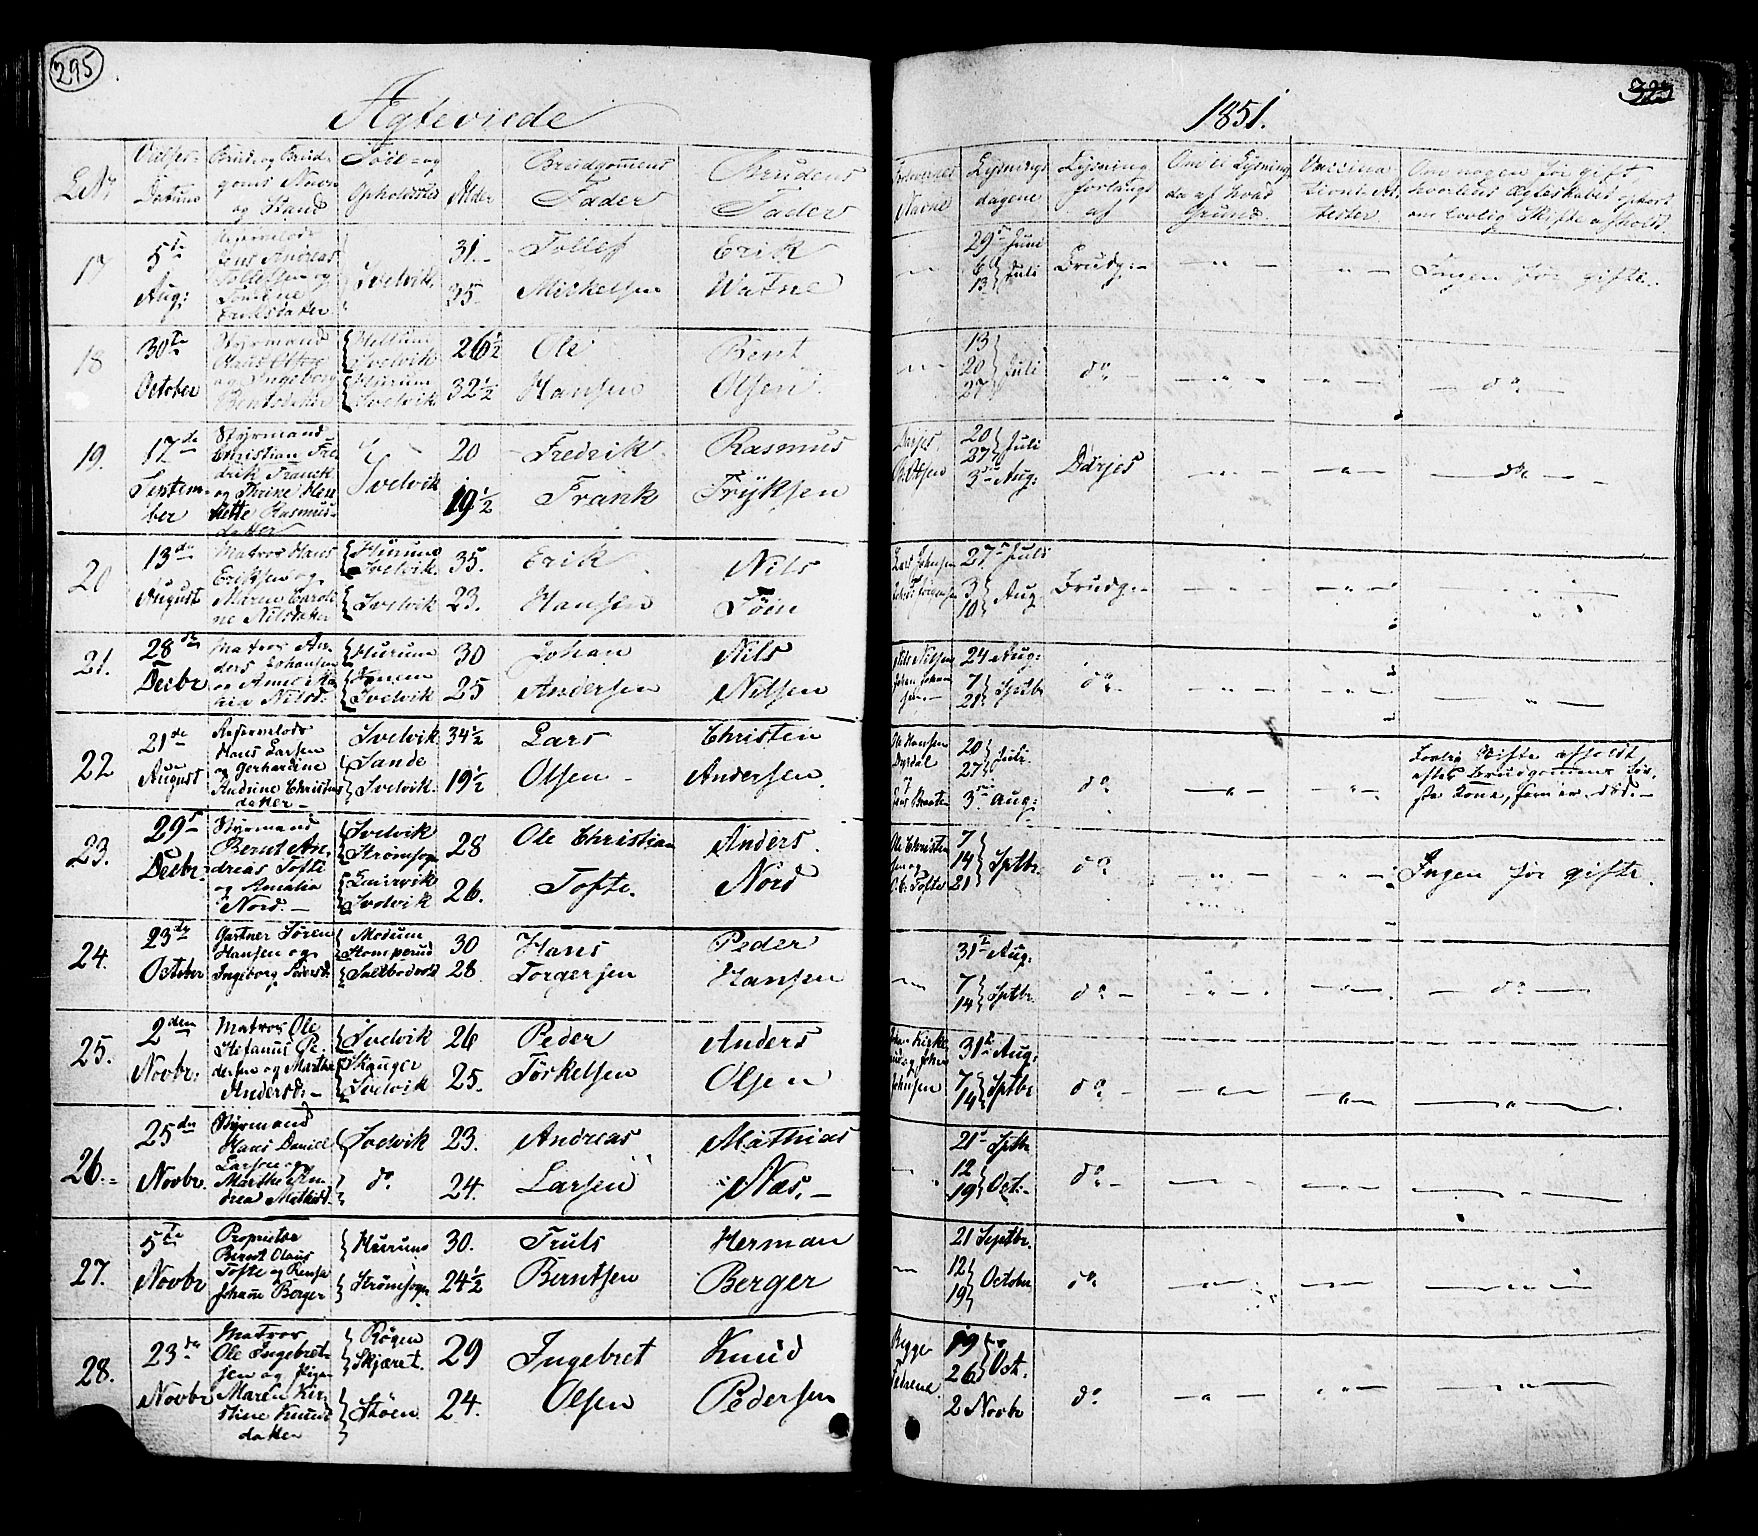 295
Ægteviede
1851.
323
L.Nr
Datum
Brud og Brud-
goms Navn
og Stand
Føde- og
Opholdssted
Alder
Brudgommens
Fader
Brudens
Fader
Forlovernes
Navne
Lysnings
dagene
Lysning
forlangt
af
Om ei Lysning
da af hvad
Grund.
Vaccina
tions At-
tester
Om nogen før gift
hvorledes Ægteskabet ophørt
om lovlig Skifte afholdt.
17
5te
Aug:
Jens Andreas
Tollefsen og
Eriksdatter
Svelvik
31.
35
Tollef
Mickelsen
Erik
Watne
29 Juni
6
13 Juli
Brudg:
Ingen før gifte.
18
30te
October
Styrmand
Hans Olsen
og Ingeborg
Bentsdatter
Hurum
Svelvik
Hurum
Svelvik
26½
32½
Ole
Hansen
Bent
Olsen
13
20
27 Juli
do
do
19.
17de
Septem-
ber
Styrmand
Christian Fre
drik Frank
og Thrine Hen
riette Rasmus-
datter
Svelvik
20
19½
Fredrik
Frank
Rasmus
Tryksen
20
27 Juli
3die Aug:
Børjes
do
20
13de
August
Matros Hans
Eriksen og
Maren Caroli
ne Nilsdatter
Hurum
Svelvik.
Svelvik
35.
23.
Erik
Hansen
Nils
Lars Johnsen
27 Juli
3
10 Aug
Brudg:
21.
28de
Decbr
Matros An-
ders Johansen
og Anne Ka
Nilsd.
Hurum
Svelvik
30
25
Johan
Andersen
Nils
Nilsen
Nils Nilsen
24 Aug:
7
21 Sptbr
do
22
21de
August
Hans Larsen
og Gerhardine
Andrine Christens
datter
Svelvik
Sande
Svelvik.
34½
19½
Lars
Olsen
Christen
Andersen.
Ole Hansen
20
27 Juli
3die Aug:
do
Lovlig Skifte afholdt
efter Brudgommens før-
ste Kone, som er død.
23.
29
Decbr.
Styrmand
Bernt An-
dreas Tofte
og Amalia
Nord.
Svelvik
Strømsogn
Svelvik
28
26.
Ole Christian
Tofte.
Anders.
Nord
Ole Christen
sen og
O.C. Tofte
7
14
21 Sptbr.
do
Ingen før gifte.
24.
23de
October
Gartner Søren
Hansen og
Ingeborg Pedersd.
Modum
Komperud
30
28.
Hans
Torgersen
Peder
Hansen
31 Aug:
7
14 Sptbr.
do
do
25.
2den
Novbr.
Matros Ole
Stefanus Pe-
dersen og Marthe
Andersd.
Svelvik
Skauger
Svelvik
26
25.
Peder
Torkelsen
Anders
Olsen
31 Aug:
7
14 Sptbr
do
26.
25de
Novbr.
Styrmand
Hans Daniel
Larsen og
Martha An
drea Mathisd.
Svelvik
do.
23.
24.
Andreas
Larsen
Mathias
Næs.
21 Sptbr
12
19 Oct.
do
27.
5te
Novbr
Proprietær
Bernt Olaus
Tofte og
Johanne Berger
Hurum
Strømsogn
30.
24½
Truls
Berntsen
Herman
Berger
21 Septbr.
12
19 October
do
28.
23de
Novbr
Matros
Ole Ingebret-
sen og Pigen
Maren Kir-
stine Knuds
datter
Røgen
Skjæret.
Støen
29
24.
Ingebret
Olsen
Knud
Pedersen
Begge
Fædrene.
19
26 Oct.
2 Novbr
do